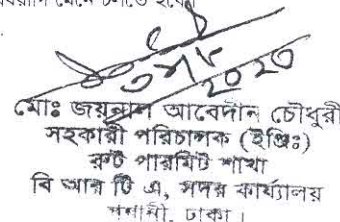 মেনে চলতে হবে।
২০২৩
মোঃ জয়নাল আবেদীন চৌধুরী
সহকারী পরিচালক (ইঞ্জিঃ)
রুট পারমিট শাখা
বি আর টি এ, সদর কার্য্যালয়
বনানী, ঢাকা।